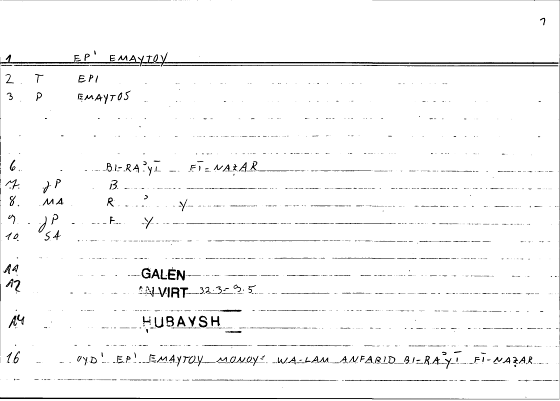 7
1 EP' EMAYTOY
2 T EPI
3 P EMAYTOS
6 BI-RA'YĪ FĪ-NAẒAR
7 JP B
8. MA R ' Y
9 JP F Y
10. SA
11 GALEN
12 AN VIRT 32.3-9.5
14 HUBAYSH
16 OYD' EP' EMAYTOY MONOY: WA-LAM ANFARID BI-RA'YĪ FĪ-NAẒAR